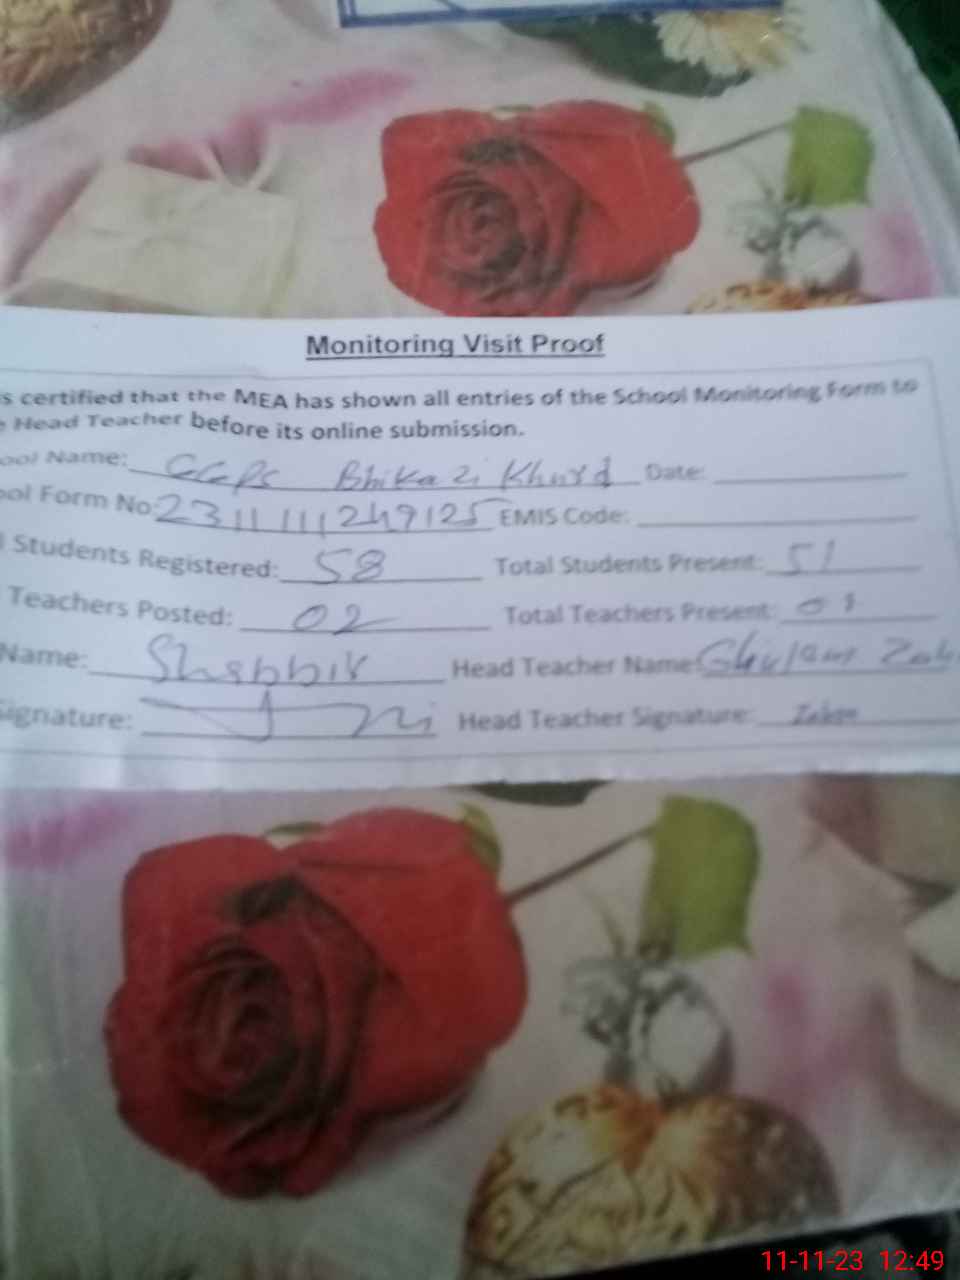 Monitoring Visit Proof
s certified that the MEA has shown all entries of the School Monitoring Form to
e Head Teacher before its online submission.
ool Name: GGPS Bhikazi Khurd Date:
ool Form No: 2311111249125 EMIS Code:
l Students Registered: 58 Total Students Present: 51
Teachers Posted: 02 Total Teachers Present: 01
Name: Shabbir Head Teacher Name: Ghulam
Signature: Head Teacher Signature:
11-11-23 12:49